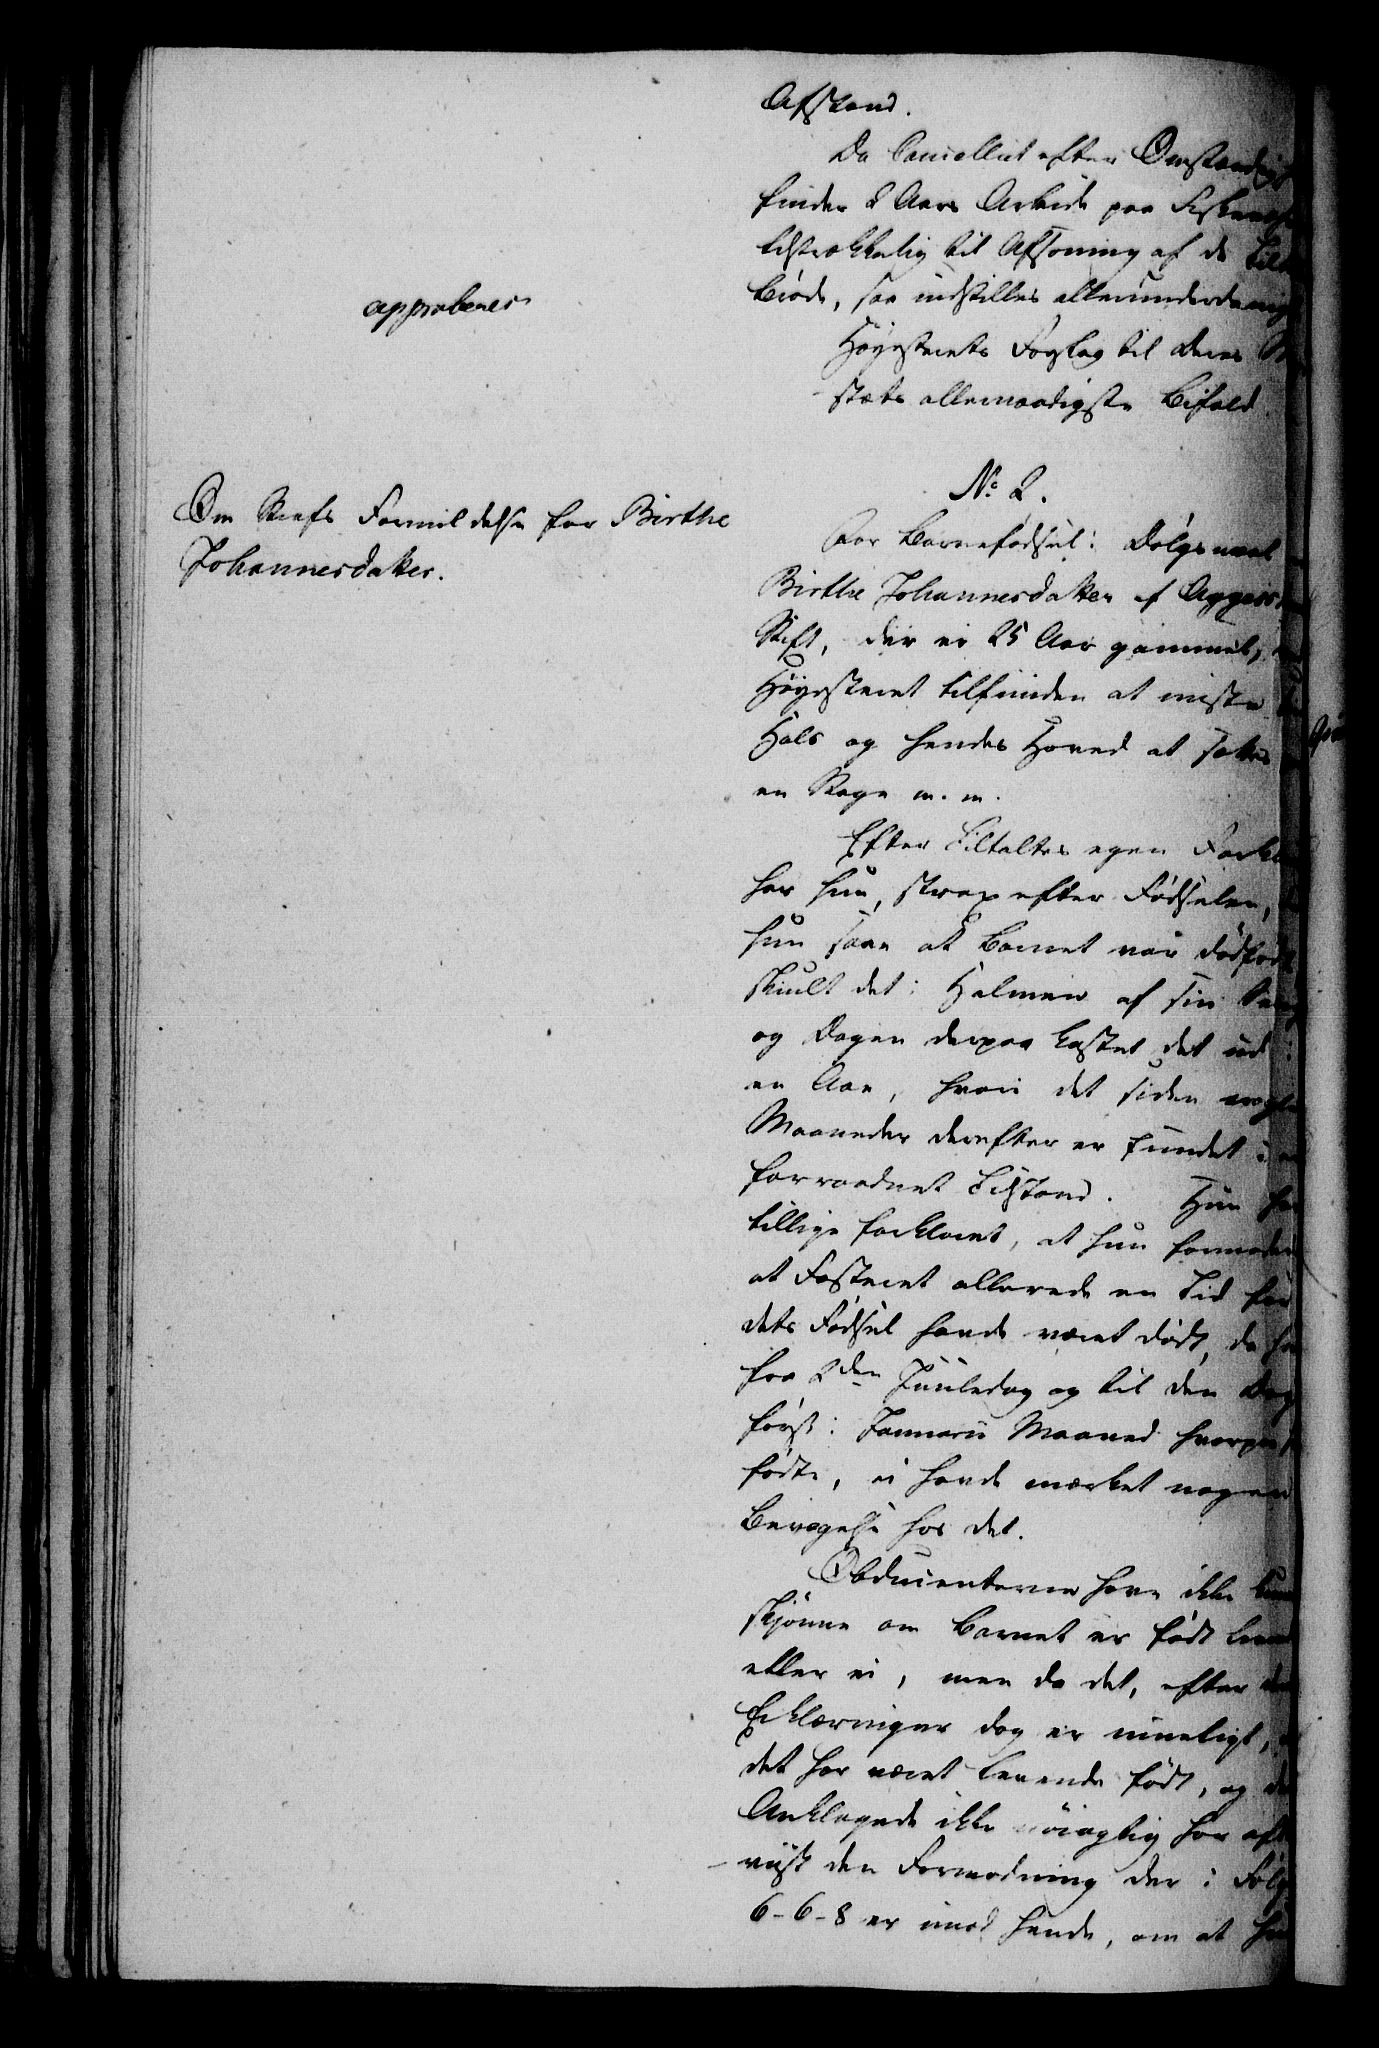 Afstand.
Da Cancelliet efter Omstændigh
finder 2 Aars Arbeide paa
tilstrækkelig til Afsoning af de
Bøde, saa indstilles allerunderdanigst
approberes
Høyesterets Forslag til Deres Ma
stæts allernaadigste Bifald.
No 2.
Om Straffs Formildelse for Birthe
Johannesdatter.
For Barnefødsel i Dølgsmaal
Birthe Johannesdatter af Aggers
Stift, der er 25 Aar gammel,
Høyesteret tilfunden at miste
Hals og hendes Hoved at sættes
en Stage m. m.
Efter Tiltaltes egen Forkl
har hun, strax efter Fødselen,
hun saae at Barnet var dødfødt
skiult det i Halmen af sin Seng
og Dagen derpaa kastet det ud i
en Aae, hvori det siden nogle
Maaneder derefter er fundet i en
forraadnet Tilstand. Hun har
tillige forklaret, at hun formoder
at Fosteret allerede en Tid før
dets Fødsel havde været dødt, da hu
fra 2den Juuledag og til den Dag
først i Januarii Maaned hvorpaa h
fødte, ei havde mærket nogen
Bevægelse hos det.
Obducenterne have ikke kun
skjønne om Barnet er født leve
eller ei, men da det, efter de
Erklæringer dog er mueligt, a
det har været levende født, og de
Anklagede ikke nøiagtig har af
viist den Formodning der i Følge
6-6-8 er imod hende, om at hu